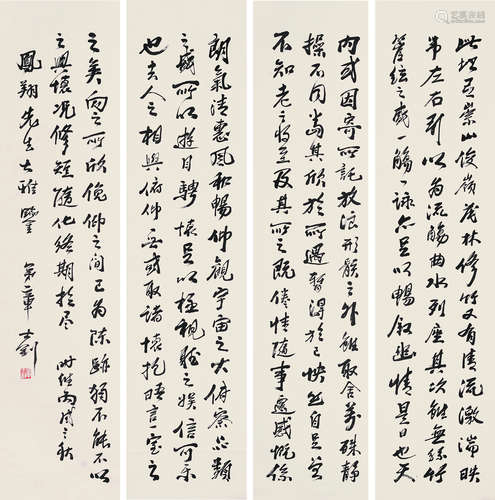 此地有崇山峻嶺茂林修竹又有清流激湍映
帶左右引以為流觴曲水列座其次雖無絲竹
管絃之盛一觴一詠亦足以暢敘幽情是日也天
朗氣清惠風和暢仰觀宇宙之大俯察品類
之盛所以遊目騁懷足以極視聽之娛信可樂
也夫人之相與俯仰一世或取諸懷抱晤言一室之
內或因寄所託放浪形骸之外雖取舍萬殊靜
躁不同當其欣於所遇暫得於己快然自足曾
不知老之將至及其所之既倦情隨事遷感慨係
之矣向之所欣俛仰之間已為陳跡猶不能不以
之興懷況修短隨化終期於盡 時維丙戌之秋
鳳翔先生大雅鑒 弟章士釗